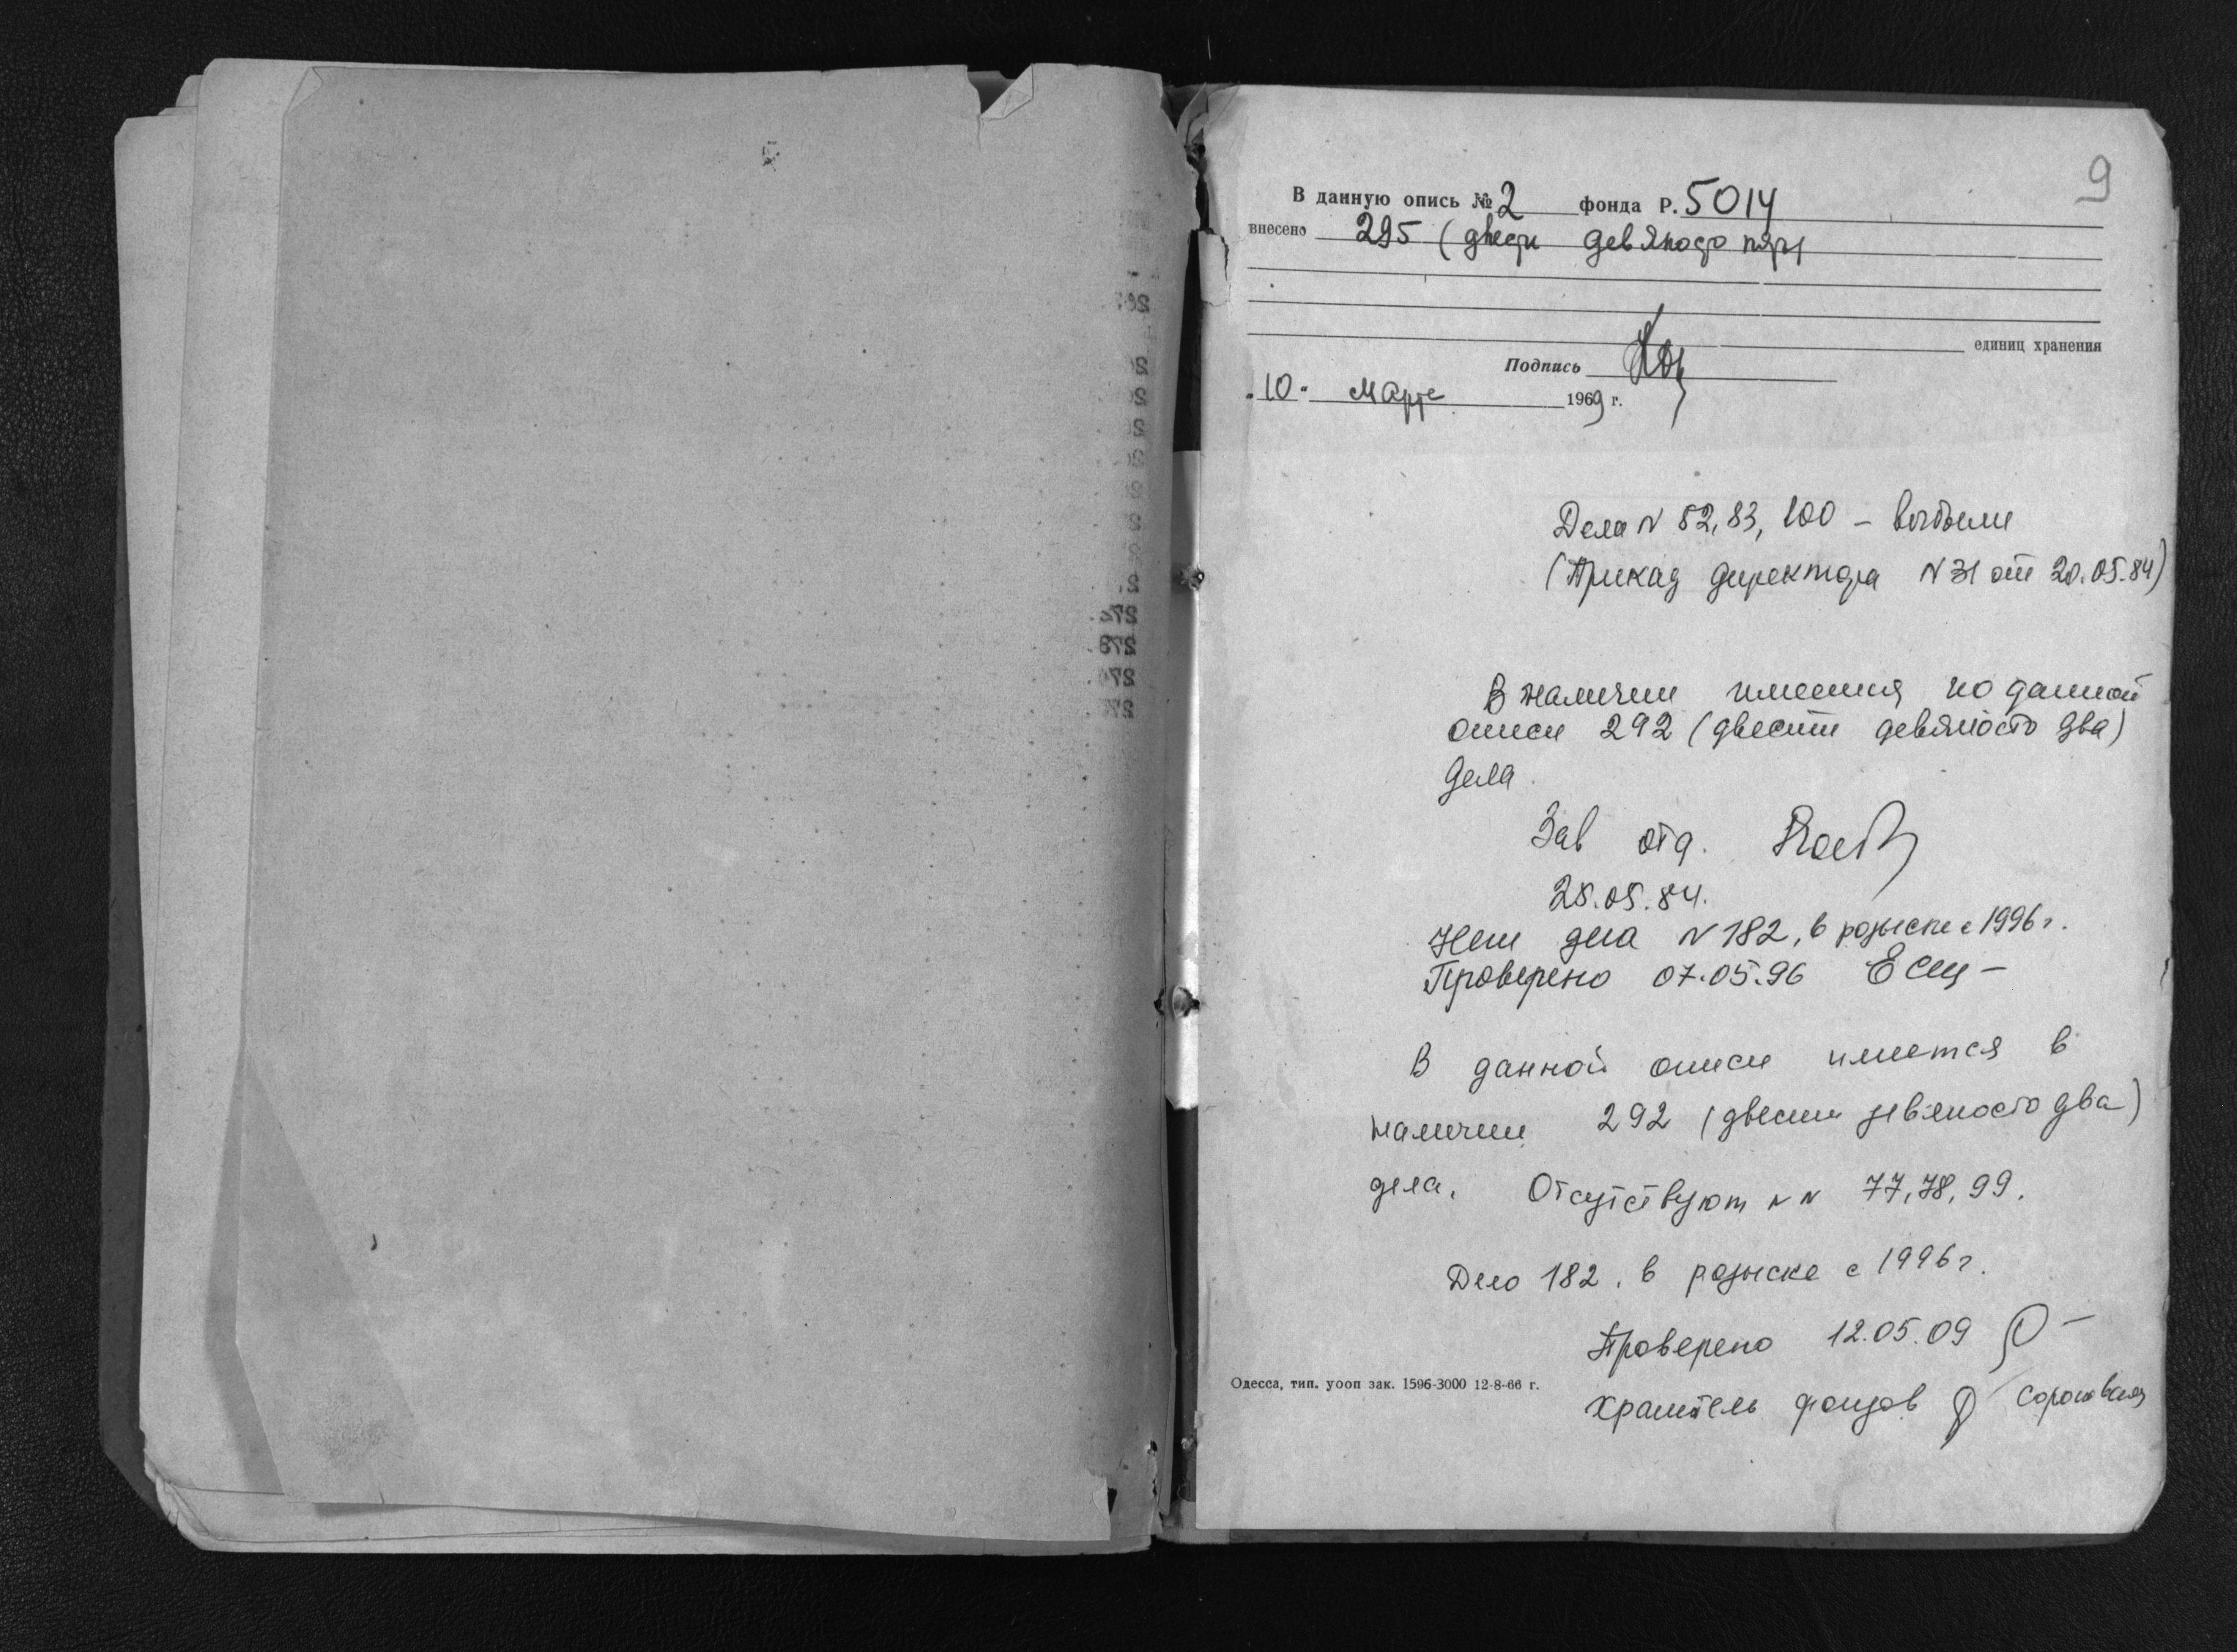 9
В данную опись № 2 фонда Р. 5014
внесено 295 (двести девяносто пять
единиц хранения
Подпись
"10" марта 1969 г.
Дела N 82, 83, 100 – выбыли
(Приказ директора N 31 от 20.05.84)
В наличии имеется по данной
описи 292 (двести девяносто два)
дела
Зав отд.
28.05.84.
Нет дела N 182, в розыске с 1996 г.
Проверено 07.05.96
В данной описи имеется в
наличии 292 (двести девяносто два)
дела. Отсутствуют N N 77, 78, 99.
Дело 182. в розыске с 1996 г.
Проверено 12.05.09
Одесса, тип. уооп зак. 1596-3000 12-8-66 г.
хранитель фондов
278